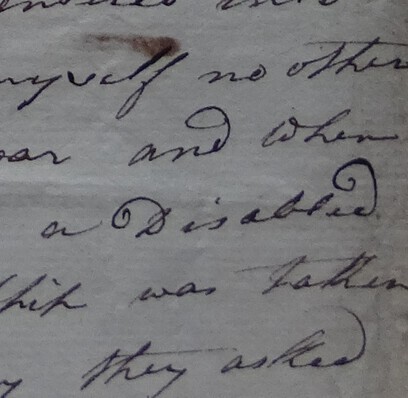 myself no other
and when
a Disabled
was taken
they asked